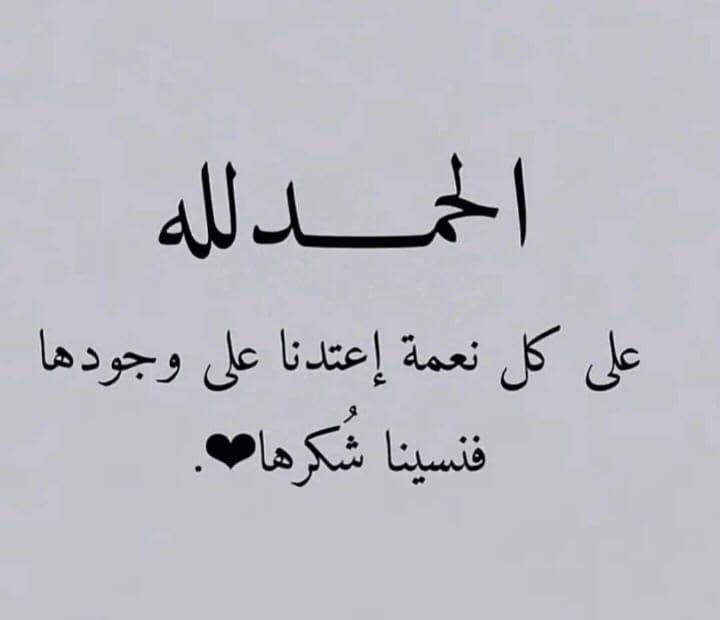 الحمـــدلله
على كل نعمة إعتدنا على وجودها
فنسينا شُكرها❤.